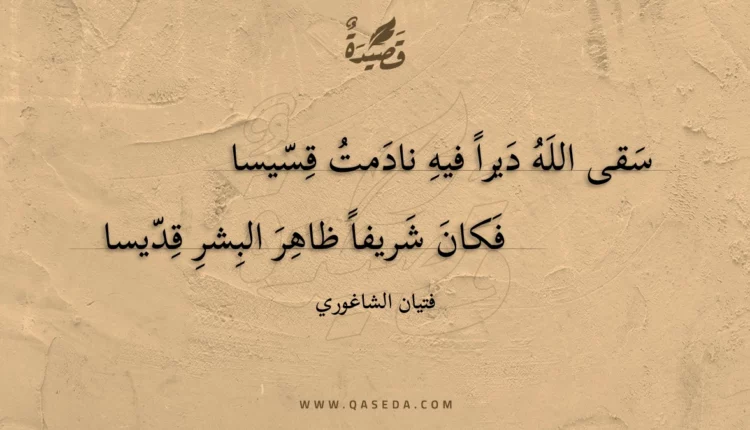 قَصِيدَةٌ
سَقى اللَهُ دَيراً فيهِ نادَمتُ قِسّيسا
فَكانَ شَريفاً ظاهِرَ البِشرِ قِدّيسا
فتيان الشاغوري
WWW.QASEDA.COM